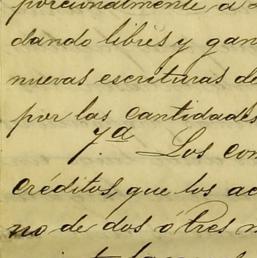 porcionalmente á
dando libres y gan
nuevas escrituras de
por las cantidades
7ª Los con
créditos, que los ac
no de dos ó tres m